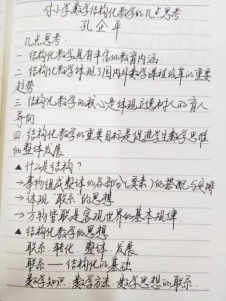 对小学数学结构化教学的几点思考
孔企平
几点思考:
一 结构化教学具有丰富的教育内涵
二 结构化教学体现了国内外数学课程改革的重要
趋势
三 结构化教学的核心是体现立德树人的育人
导向
四 结构化教学的重要目标是促进学生数学思维
的整体发展
▲什么是结构?
→事物组成整体的各部分(要素)的搭配与安排
→体现"联系"的思想
→万物皆联是客观世界的基本规律
▲结构化教学的思想
联系 转化 整体 发展
联系——结构化的基础
数学知识、数学方法、数学思想的联系